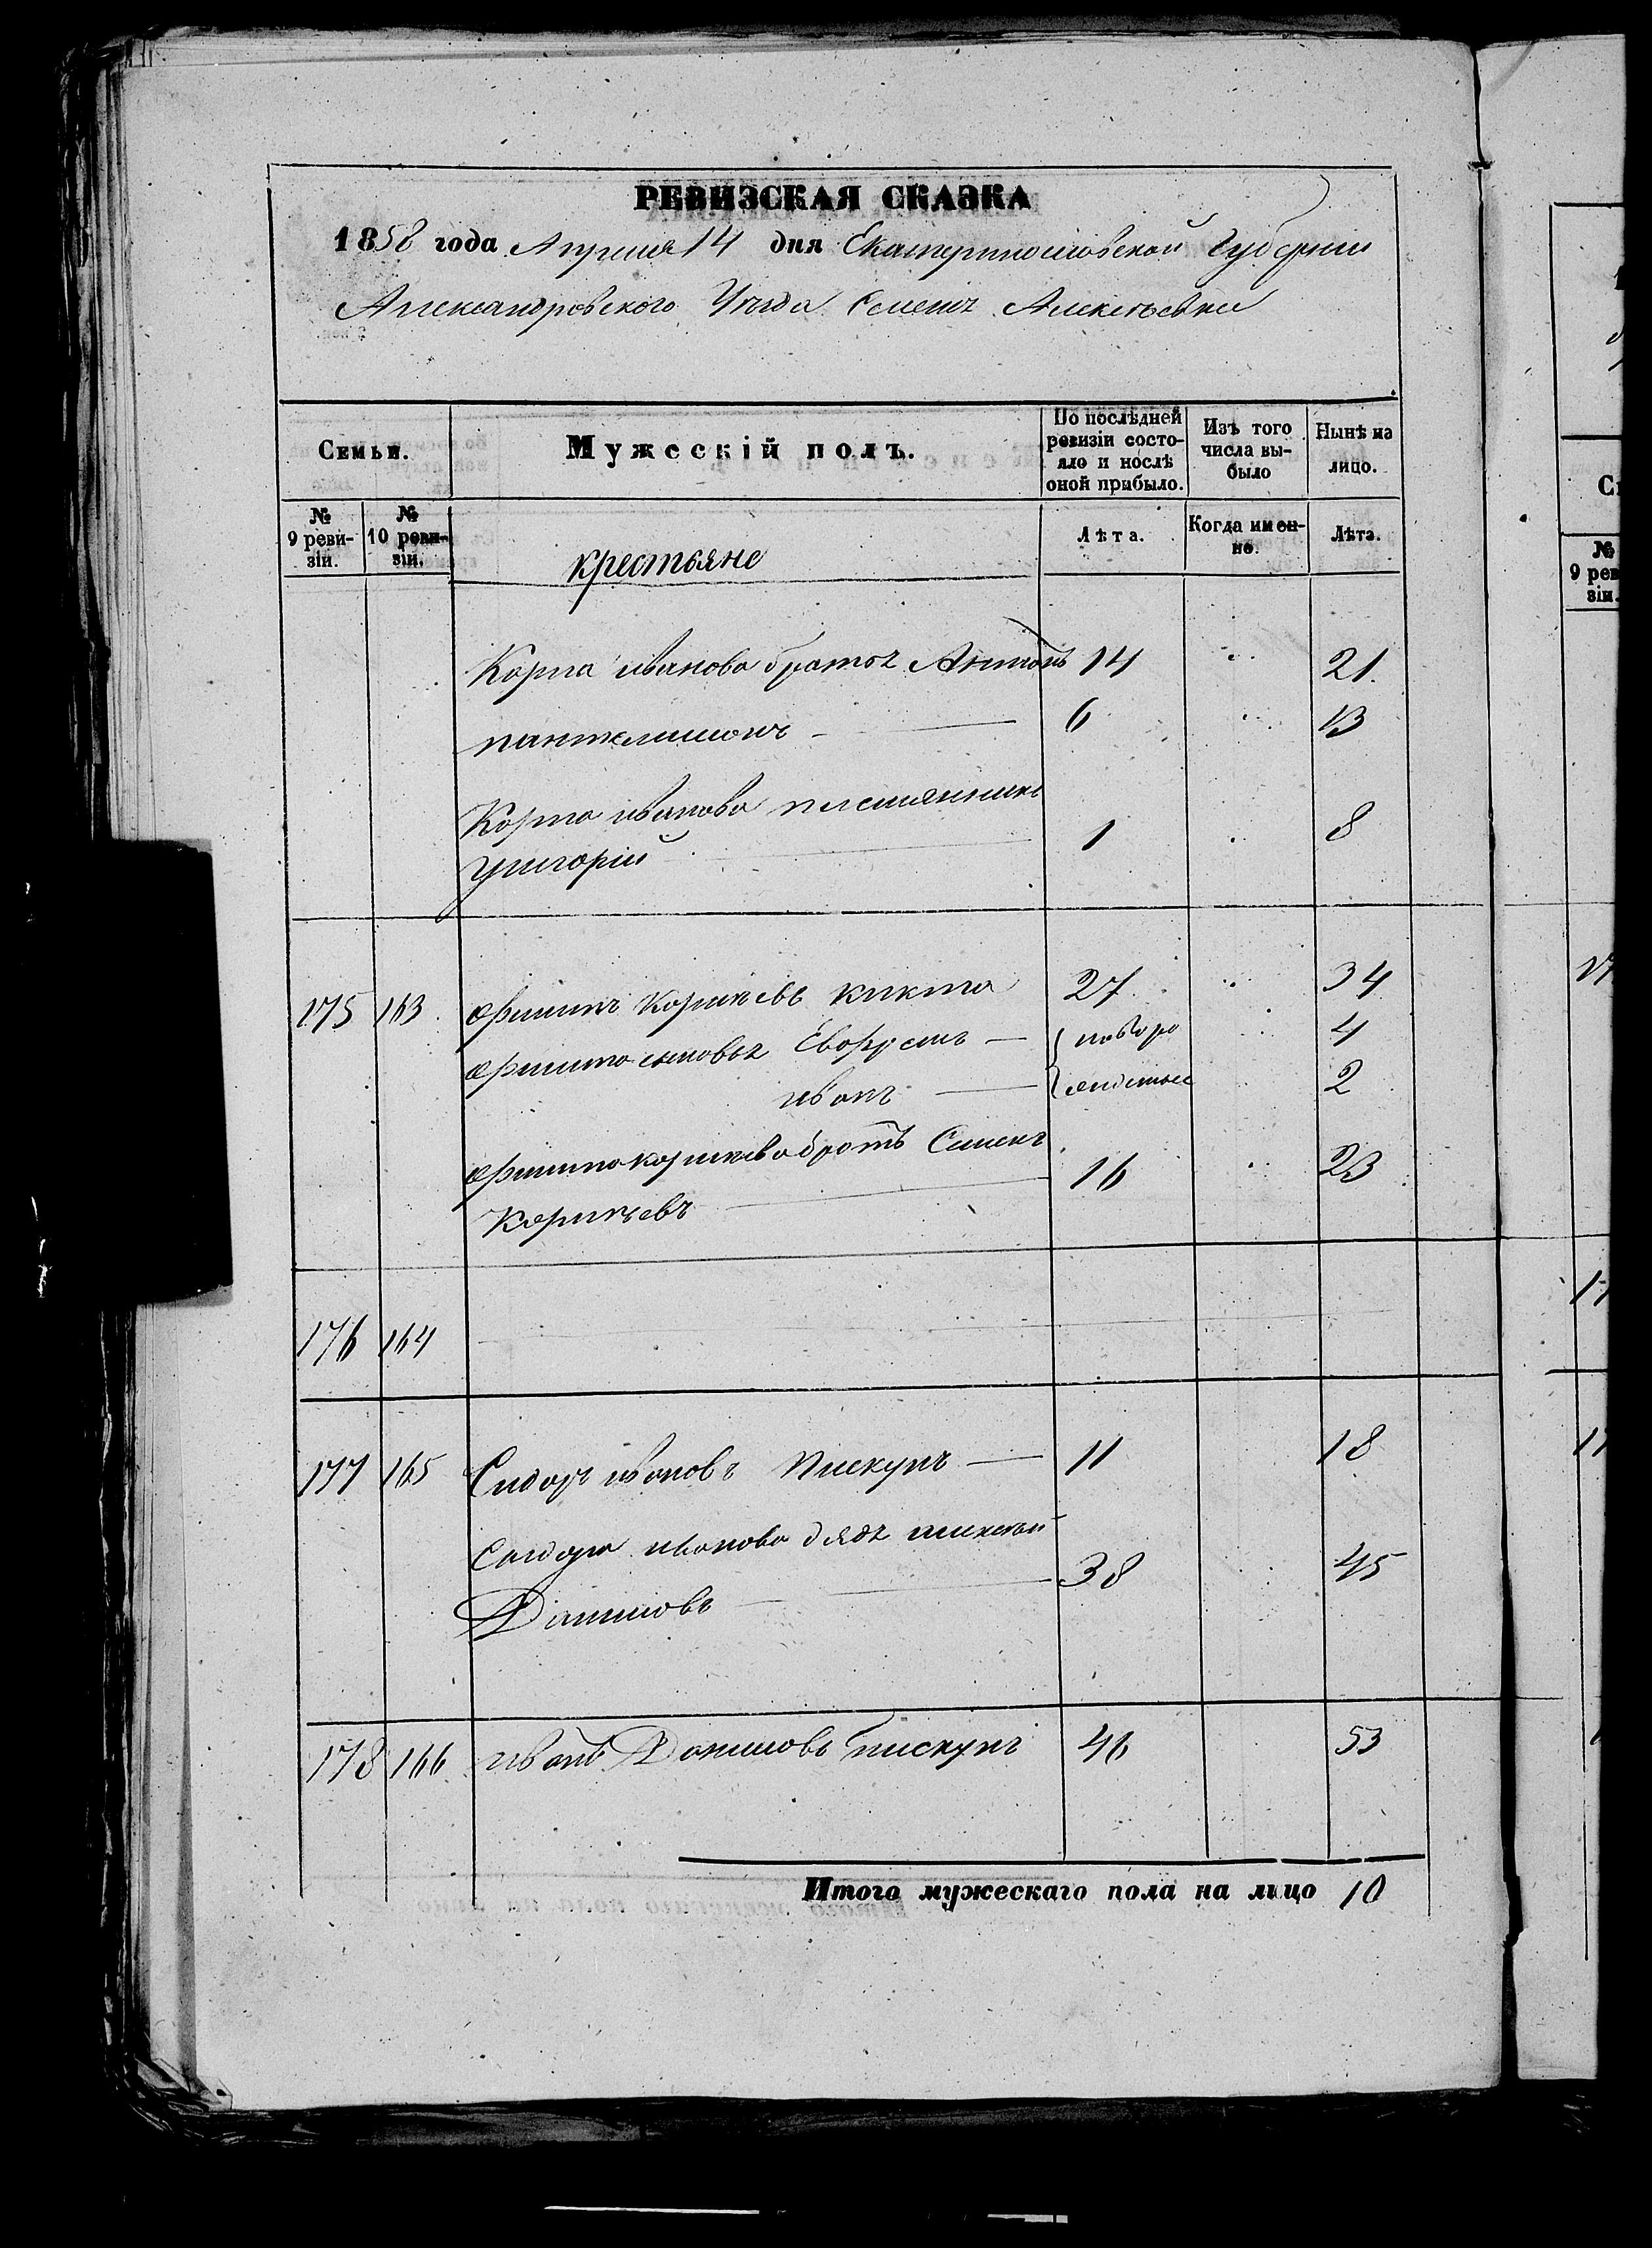 РЕВИЗСКАЯ СКАЗКА
1858 года Апреля 14 дня Екатеринославской Губернии
Александровского Уезда Селенія Алексеевки
Семьи.
Мужескій полъ.
По послѣдней ревизіи состояло и послѣ оной прибыло.
Изъ того числа выбыло
Нынѣ на лицо.
№ 9 ревизіи.
№ 10 ревизіи.
крестьяне
Лѣта.
Когда именно.
Лѣта.
Карпа Иванова братъ Антонъ 14 21
пантелимонъ 6 13
Карпа иванова племянникъ
Григорій 1 8
175 163 Филипъ Корнѣевъ кикта 27 34
Филипа сыновья 4
иванъ 2
Филипа корнѣева братъ Семенъ
Корнѣевъ 16 23
176 164
177 165 Сидоръ ивановъ пискунъ 11 18
Сидора иванова дядя алексѣй
Даниловъ 38 45
178 166 иванъ Даниловъ пискунъ 46 53
Итого мужескаго пола на лицо 10
№
9 рев
зіи.